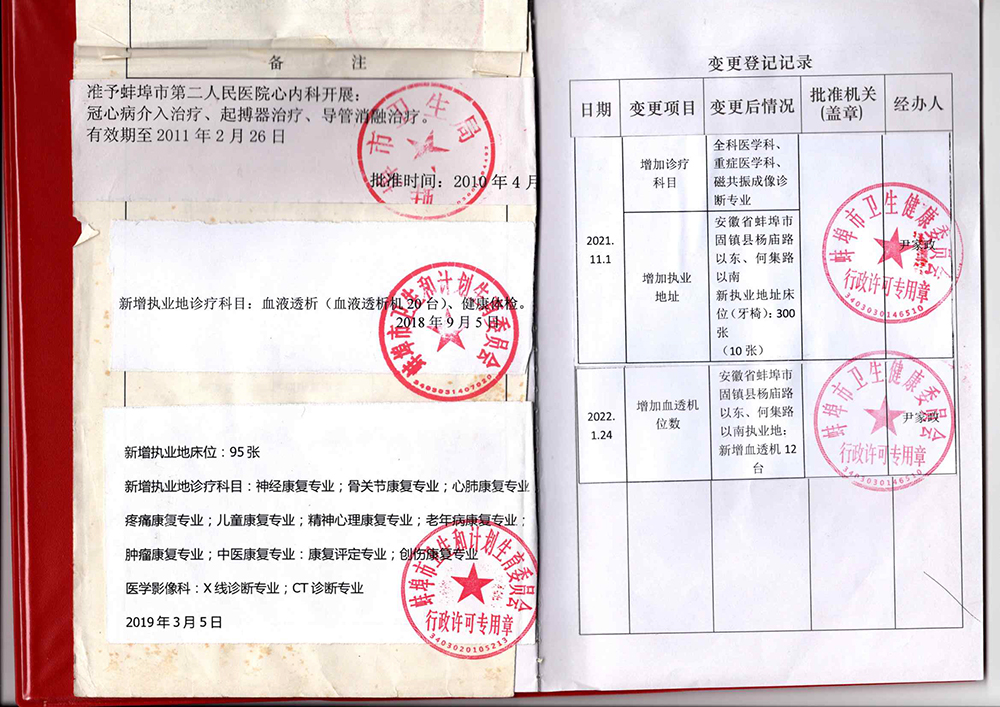 备 注
准予蚌埠市第二人民医院心内科开展：
冠心病介入治疗、起搏器治疗、导管消融治疗。
有效期至 2011 年 2 月 26 日
批准时间：2010 年 4 月
市卫生局
新增执业地诊疗科目：血液透析（血液透析机 20 台）、健康体检。
2018 年 9 月 5 日
蚌埠市卫生和计划生育委员会
新增执业地床位：95 张
新增执业地诊疗科目：神经康复专业；骨关节康复专业；心肺康复专业
疼痛康复专业；儿童康复专业；精神心理康复专业；老年病康复专业；
肿瘤康复专业；中医康复专业：康复评定专业；创伤康复专业
医学影像科：X 线诊断专业；CT 诊断专业
2019 年 3 月 5 日
蚌埠市卫生和计划生育委员会
行政许可专用章
3403020105213
变更登记记录
日期 变更项目 变更后情况 批准机关 经办人
(盖章)
2021.
11.1
增加诊疗
科目
全科医学科、
重症医学科、
磁共振成像诊
断专业
增加执业
地址
安徽省蚌埠市
固镇县杨庙路
以东、何集路
以南
新执业地址床
位（牙椅）：300
张
（10 张）
蚌埠市卫生健康委员会
行政许可专用章
3403030146510
尹家政
2022.
1.24
增加血透机
位数
安徽省蚌埠市
固镇县杨庙路
以东、何集路
以南执业地：
新增血透机 12
台
蚌埠市卫生健康委员会
行政许可专用章
3403030146510
尹家政